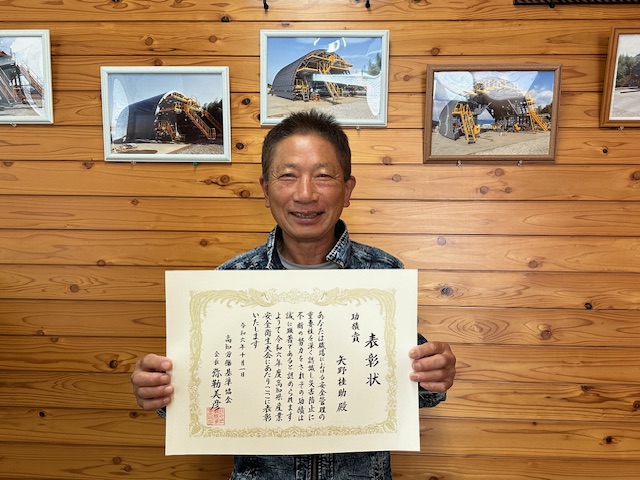 表彰状
功績賞
矢野桂助 殿
あなたは職場における安全管理の
重要性を深く認識し災害防止に
不断の努力をされその功績は
誠に顕著であると認められます
よって令和六年度高知県産業
安全衛生大会にあたりここに表彰
いたします
令和六年十月一日
高知労働基準協会
会長 弥勒美彦